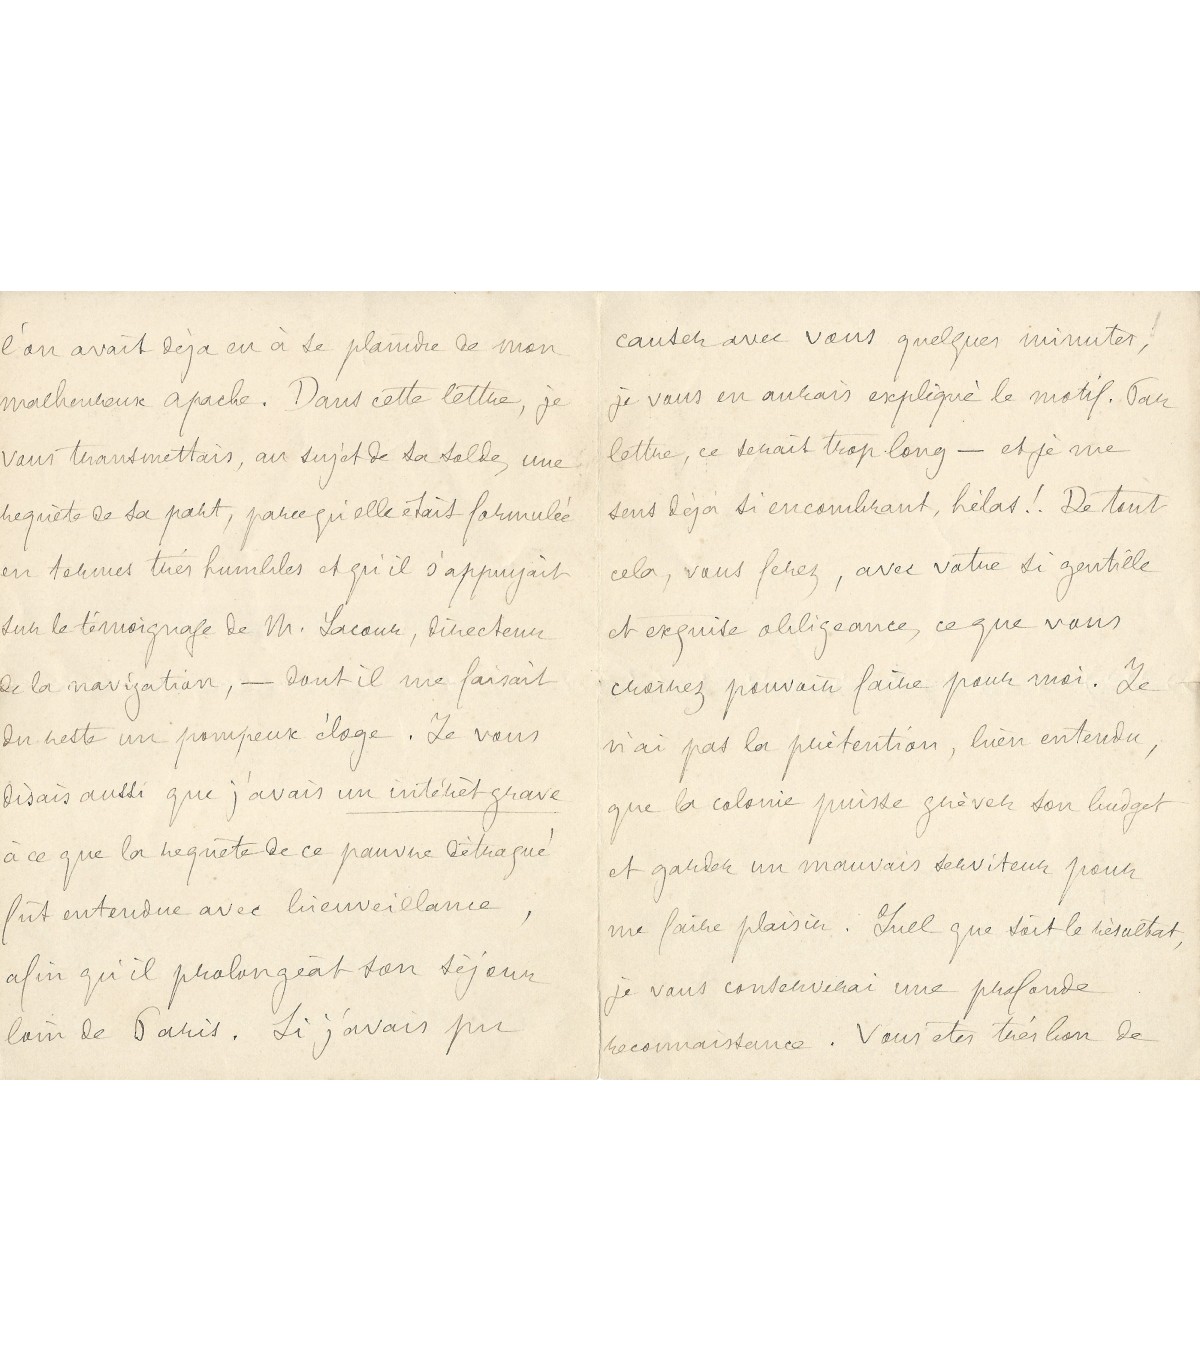 l'on avait déja eu à se plaindre de mon
malheureux apache. Dans cette lettre, je
vous transmettais, au sujet de sa solde, une
requête de sa part, parce qu'elle était formulée
en termes très humbles et qu'il s'appuyait
sur le témoignage de M. Lacour, directeur
de la navigation, — dont il me faisait
du reste un pompeux éloge. Je vous
disais aussi que j'avais un intérêt grave
à ce que la requête de ce pauvre détraqué
fût entendue avec bienveillance,
afin qu'il prolongeât son séjour
loin de Paris. Si j'avais pu
causer avec vous quelques minutes,
je vous en aurais expliqué le motif. Par
lettre, ce serait trop long — et je me
sens déjà si encombrant, hélas!. De tout
cela, vous ferez, avec votre si gentille
et exquise obligeance, ce que vous
croirez pouvoir faire pour moi. Je
n'ai pas la prétention, bien entendu,
que la colonie puisse grèver son budget
et garder un mauvais serviteur pour
me faire plaisir. Quel que soit le résultat,
je vous conserverai une profonde
reconnaissance. Vous êtes très bon de